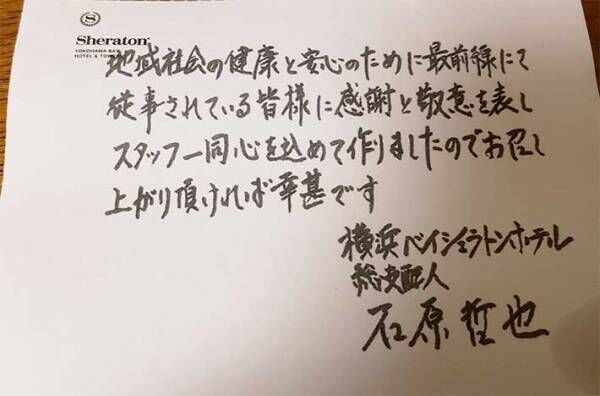 Sheraton
YOKOHAMA BAY
HOTEL & TOWERS
地域社会の健康と安心のために最前線にて
従事されている皆様に感謝と敬意を表し
スタッフ一同心を込めて作りましたのでお召し
上がり頂ければ幸甚です
横浜ベイシェラトンホテル
総支配人
石原哲也